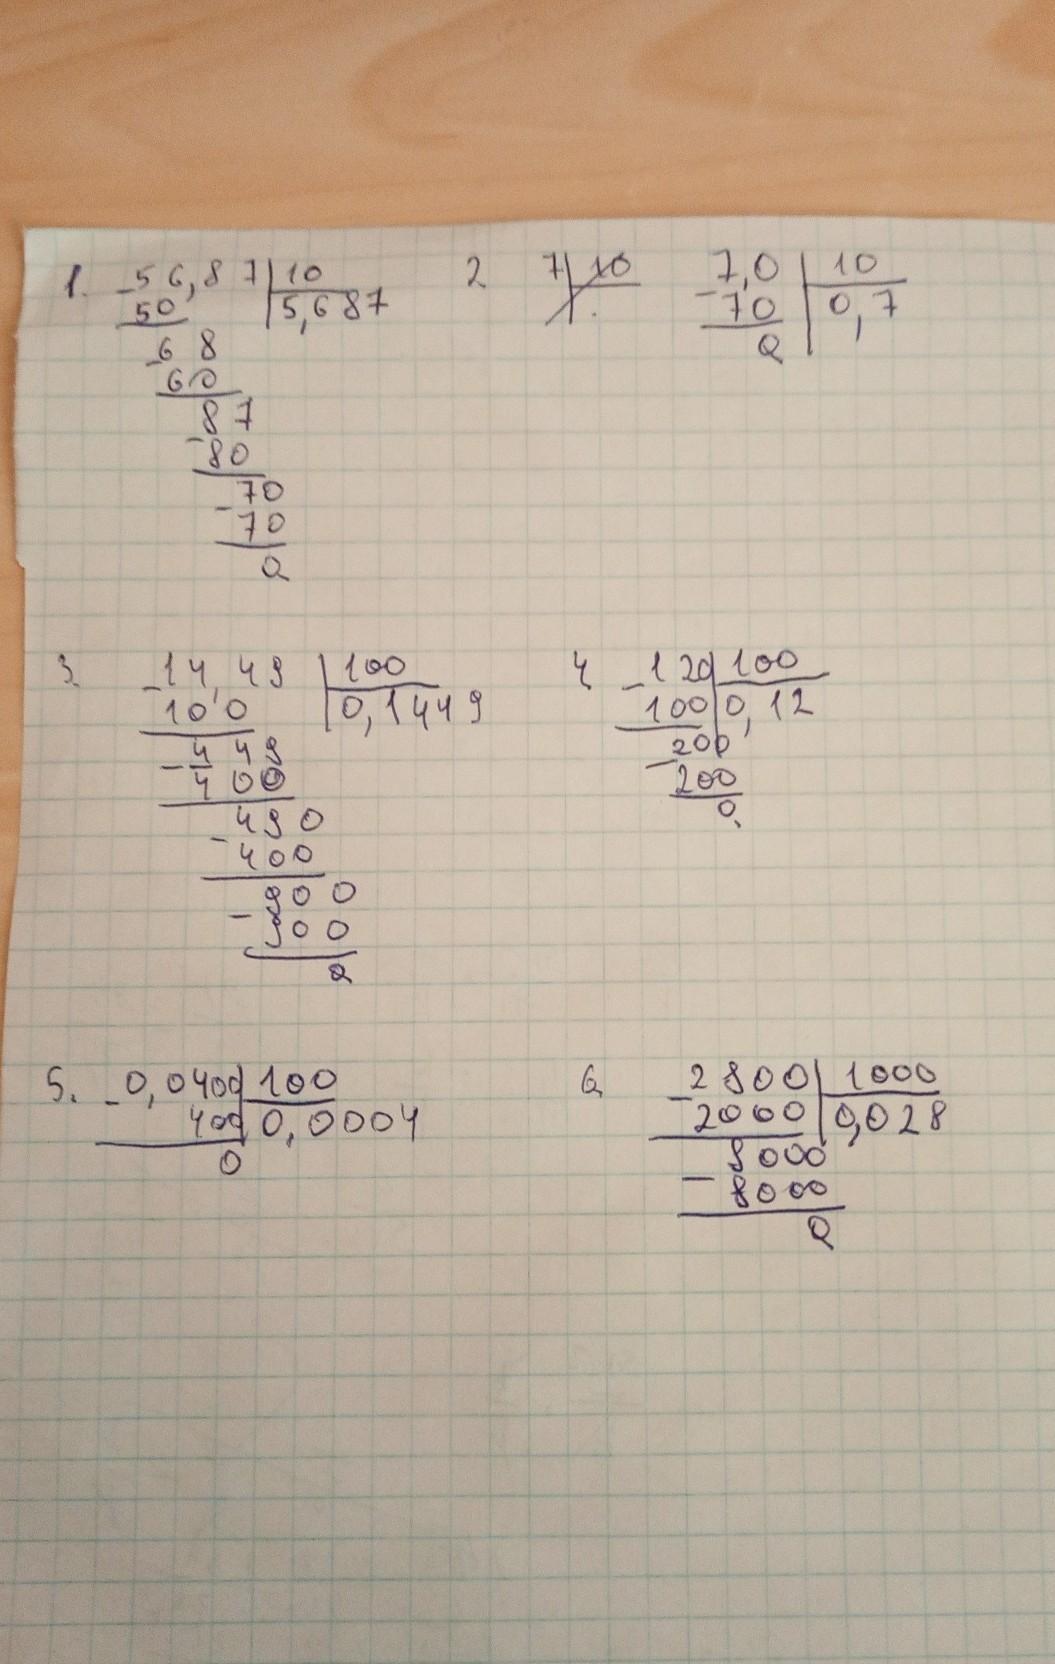 1. -56,87|10
50 5,687
-68
60
87
-80
-70
70
0
2 7|10
7,0|10
-70 0,7
0
3. -14,49|100
100 0,1449
-449
400
490
-400
900
-900
0
4 -120|100
100 0,12
-200
200
0
5. -0,0400|100
400 0,0004
0
6 -2800|1000
2000 0,028
8000
-8000
0